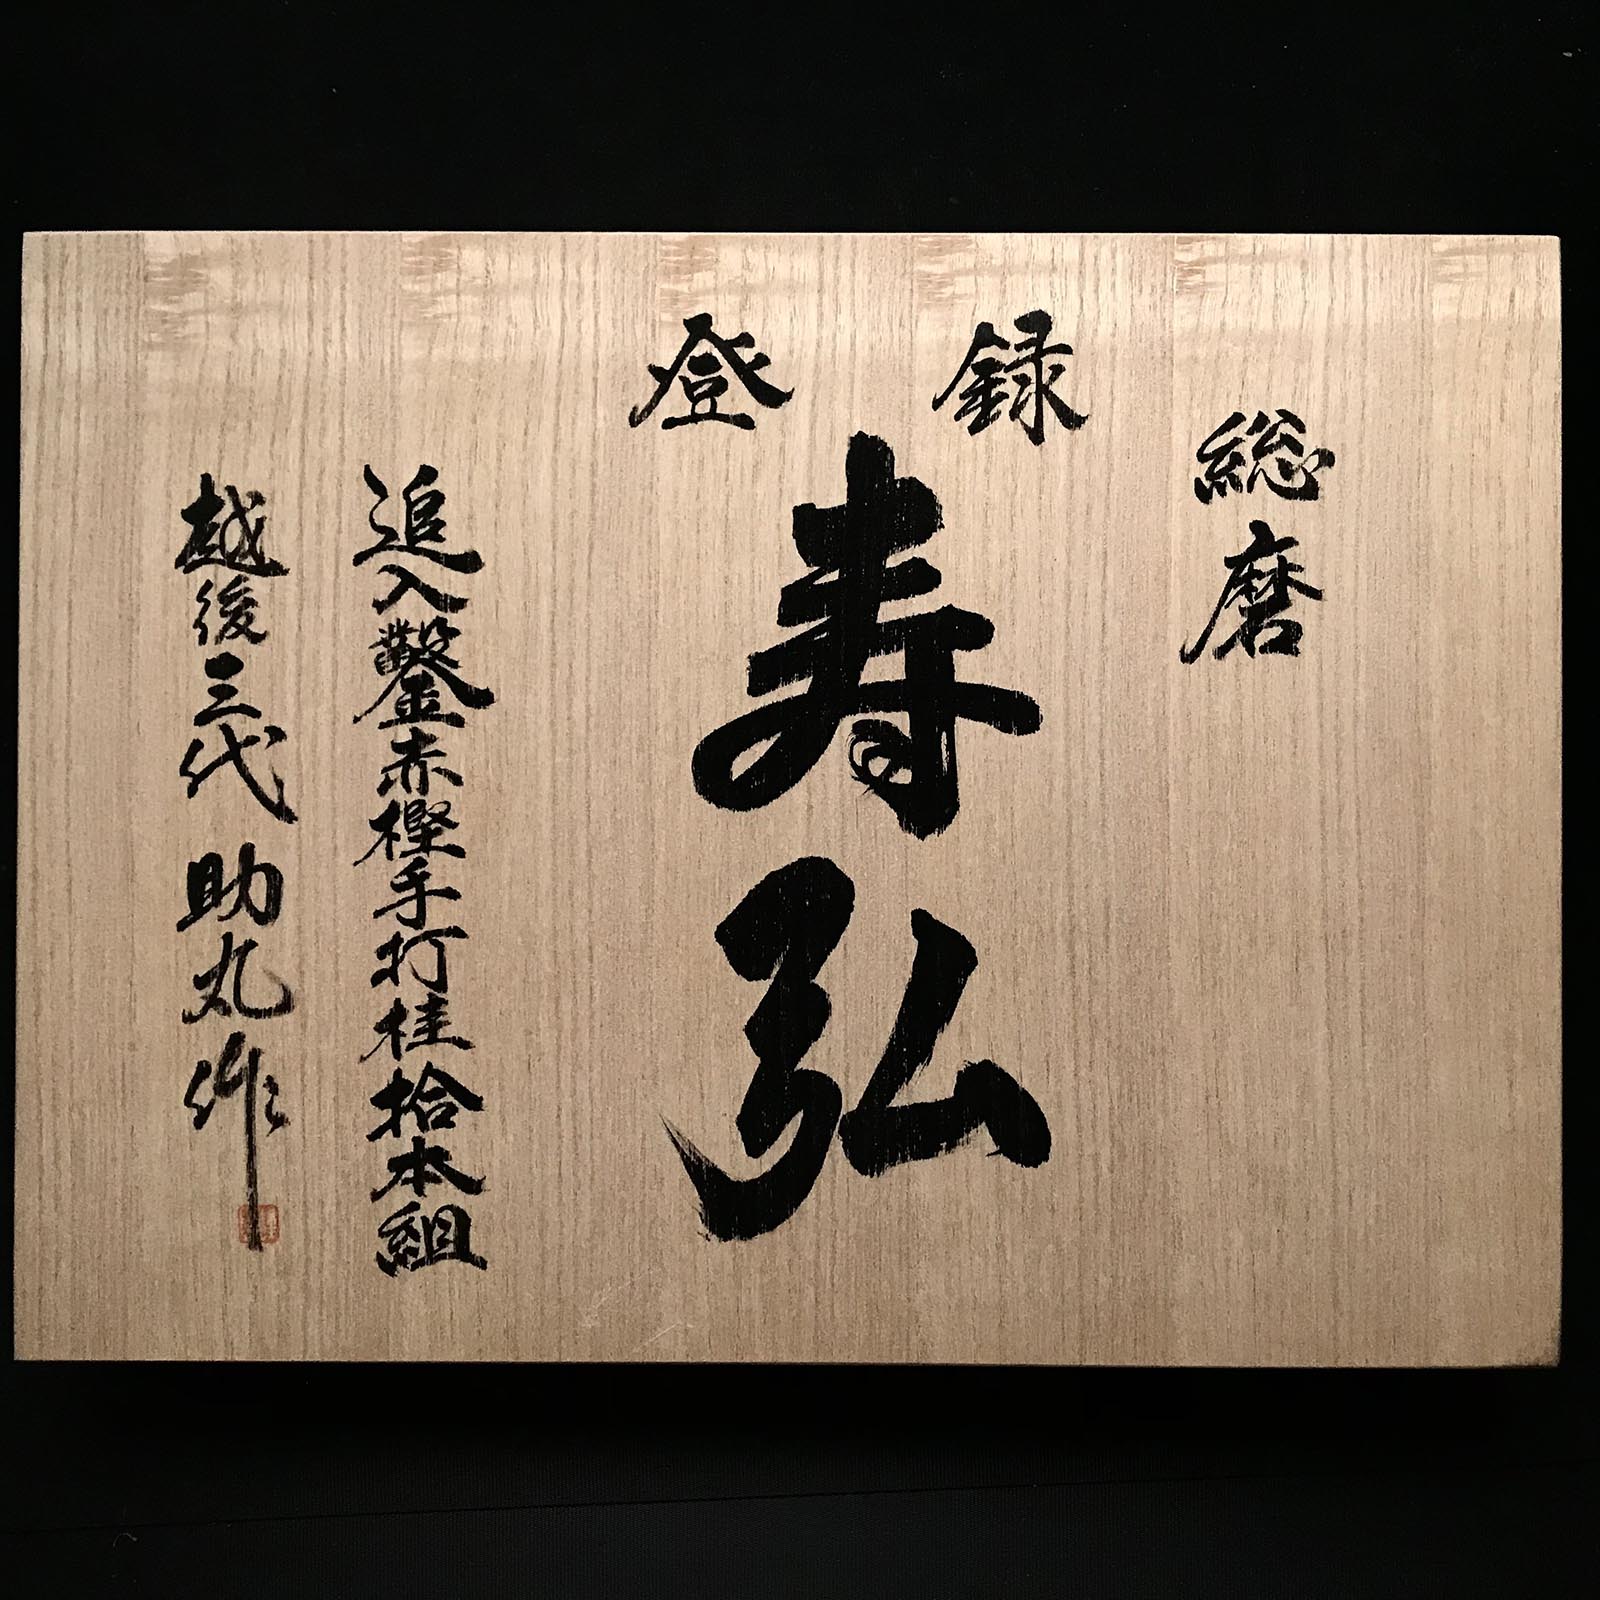 総磨
登録
寿弘
追入鑿赤樫手打桂拾本組
越後三代助丸作